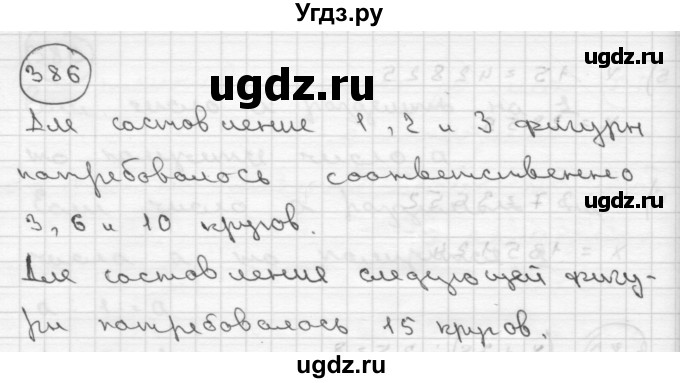 Угдз.ру
386
ugdz.ru
Для составление 1, 2 и 3 фигуры
потребовалось соответственно
3, 6 и 10 кругов.
ugdz.ru
Для составления следующей фигу-
ры потребовалось 15 кругов.
ugdz.ru